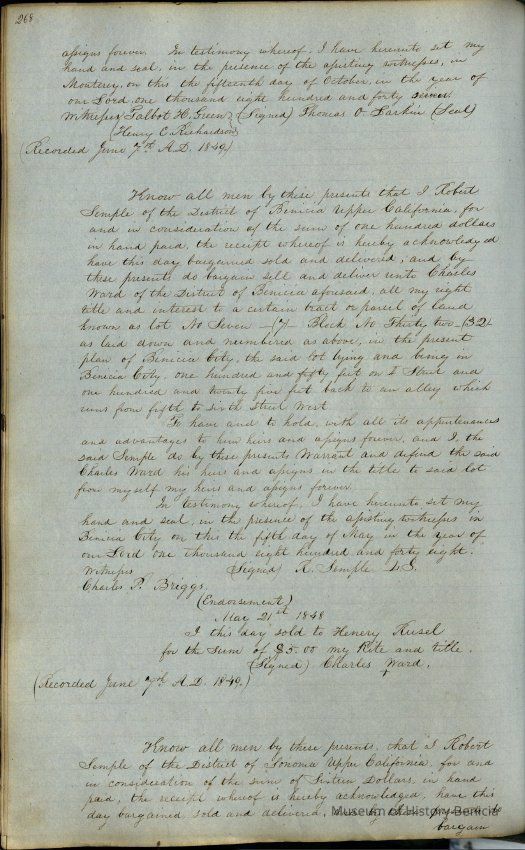 268
assigns forever. In testimony whereof, I have hereunto set my
hand and seal, in the presence of the assisting witnesses, in
Monterey, on this the fifteenth day of October, in the year of
our Lord one thousand eight hundred and forty seven.
Witnesses Talbot H. Green (Signed) Thomas O. Larkin (Seal)
(Henry C. Richardson)
(Recorded June 7th A.D. 1849)
Know all men by these presents that I Robert
Semple of the District of Benicia Upper California, for
and in consideration of the sum of one hundred dollars
in hand paid, the receipt whereof is hereby acknowledged
have this day bargained sold and delivered, and by
these presents do bargain sell and deliver unto Charles
Ward of the District of Benicia aforesaid, all my right
title and interest to a certain tract or parcel of land
known as lot No Seven (7) Block No Thirty two (32)
as laid down and numbered as above, in the present
plan of Benicia City, the said lot lying and being in
Benicia City, one hundred and fifty feet on I Street and
one hundred and twenty five feet back to an alley which
runs from fifth to sixth Street West
To have and to hold, with all its appurtenances
and advantages to him heirs and assigns forever, and I, the
said Semple do by these presents Warrant and defend the said
Charles Ward his heirs and assigns in the title to said lot
from myself my heirs and assigns forever.
In testimony whereof, I have hereunto set my
hand and seal, in the presence of the assisting witnesses in
Benicia City on this the fifth day of May, in the year of
our Lord one thousand eight hundred and forty eight.
Witnesses (Signed) R. Semple L.S.
Charles P. Briggs.
(Endorsement)
May 21st 1848
I this day sold to Henery Rusel
for the sum of $5.00 my Rite and title.
(Signed) Charles Ward.
(Recorded June 7th A.D. 1849.)
Know all men by these presents, that I Robert
Semple of the District of Sonoma Upper California, for and
in consideration of the sum of Sixteen Dollars, in hand
paid, the receipt whereof is hereby acknowledged, have this
day bargained, sold and delivered, and by these presents do
bargain
Museum of History Benicia